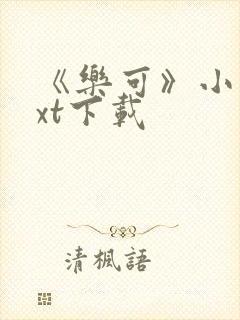 《樂可》小
xt下載
清楓語